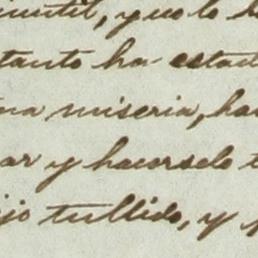 inutil, y no lo
tanto ha estad
una miseria, ha
ar y hacerselo
ijo tullido, y